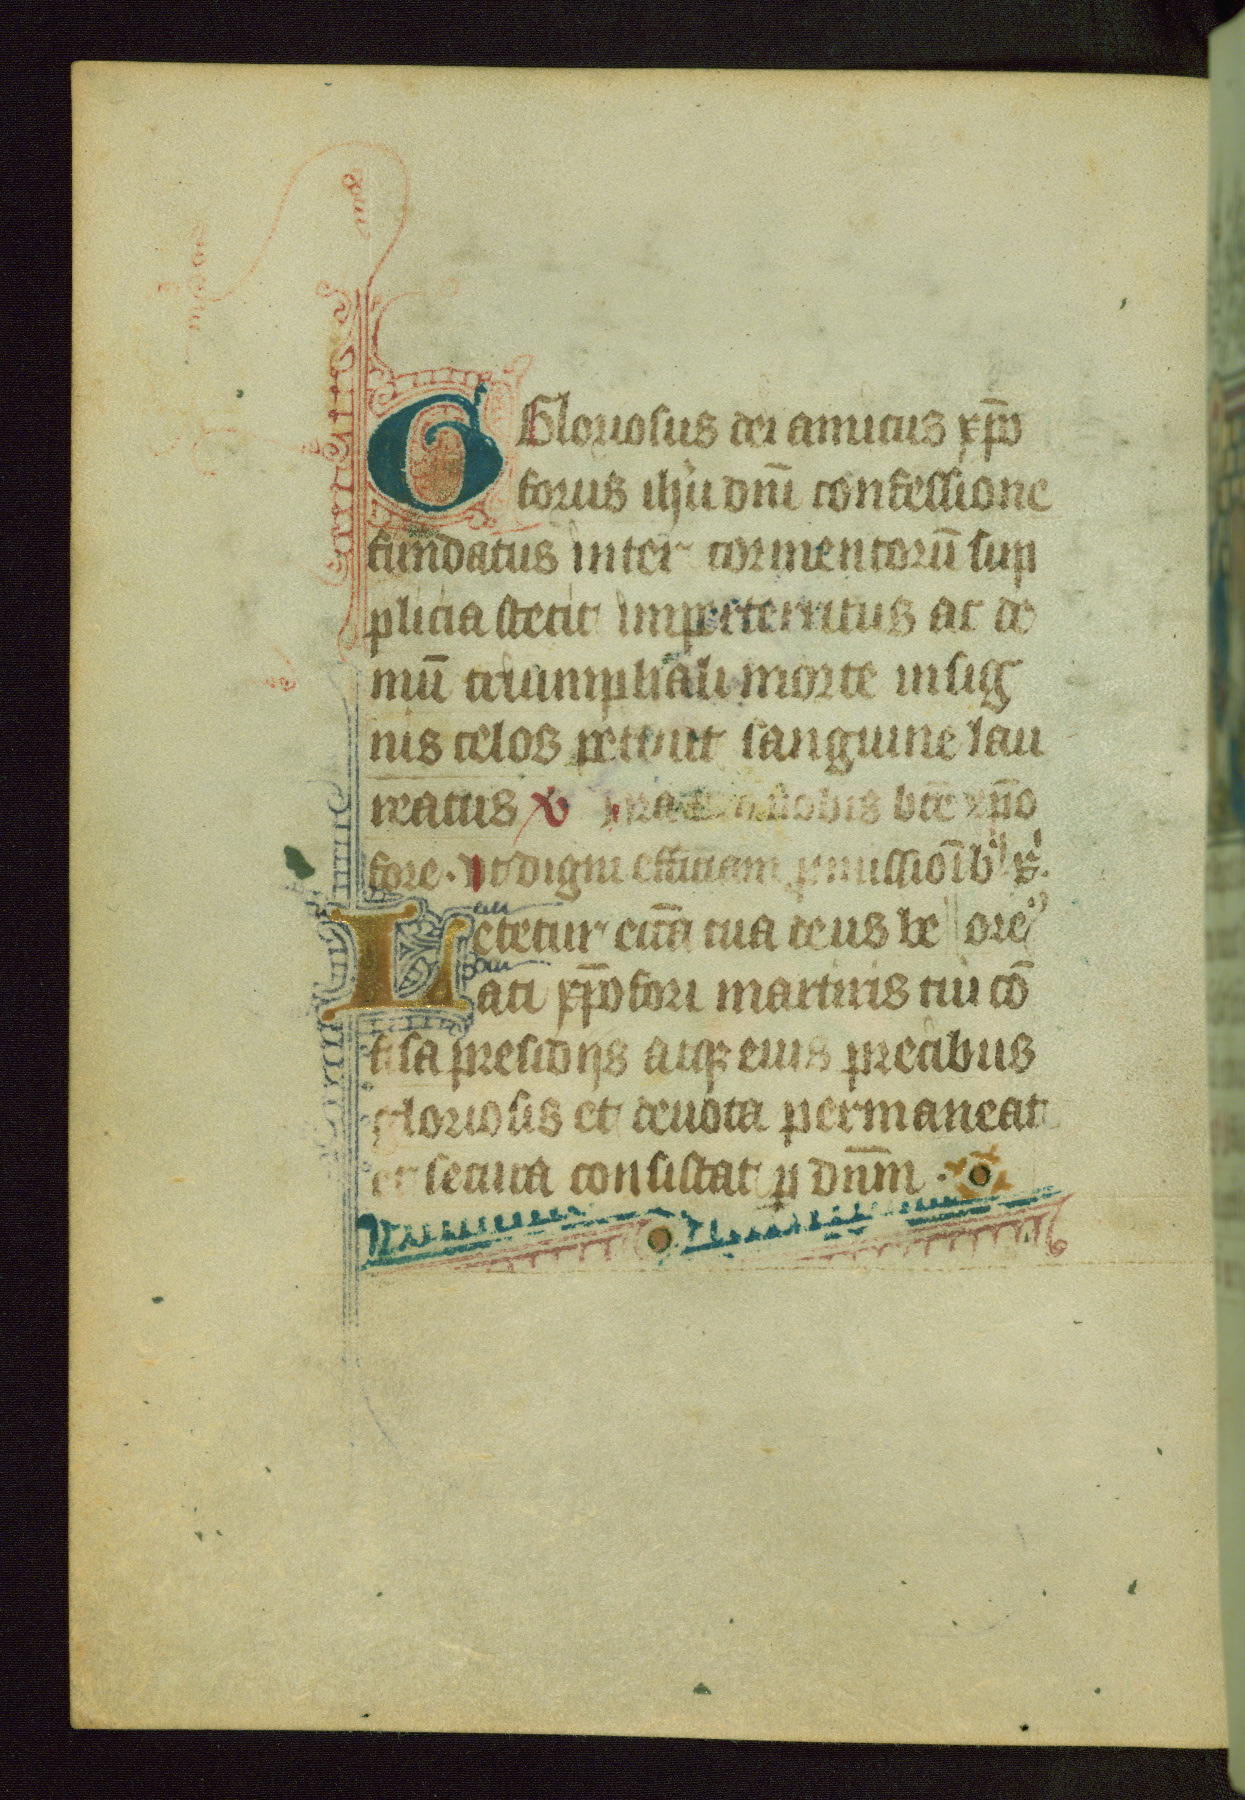 Gloriosus dei amicus xp̄o
forus ihū dnī confessione
fundatus inter tormentorū sup
plicia stetit imperterritus ac de
mū triumphali morte insig
nis celos petiuit sanguine lau
reatus nobis btē xp̄o
fore. vt digni efficiam p̱missioīb
Letetur eccā tua deus be ore
ati xp̄ofori martiris tui cō
fisa presidijs atqꝫ eius precibus
gloriosis et deuota permaneat
et secura consistat ꝑ dn̄m .